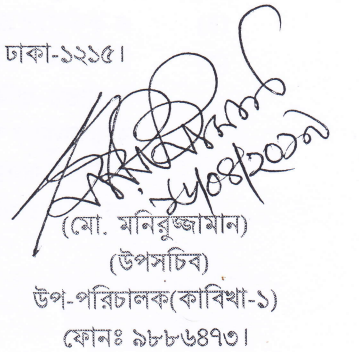 ঢাকা-১২১৫।
(মো. মনিরুজ্জামান)
(উপসচিব)
উপ-পরিচালক(কাবিখা-১)
ফোনঃ ৯৮৮৬৪৭৩।